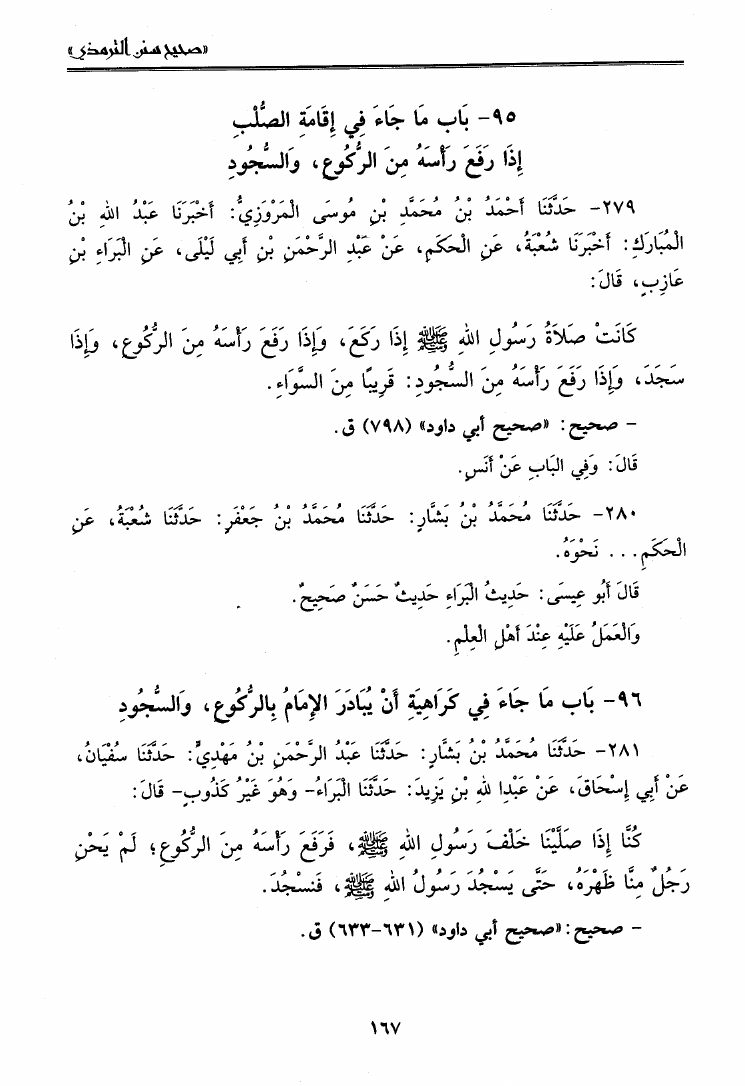 «صحيح سنن الترمذي»
٩٥- بَاب مَا جَاءَ فِي إِقَامَةِ الصُّلْبِ
إِذَا رَفَعَ رَأْسَهُ مِنَ الرُّكُوعِ، وَالسُّجُودِ
٢٧٩- حَدَّثَنَا أَحْمَدُ بْنُ مُحَمَّدِ بْنِ مُوسَى الْمَرْوَزِيُّ: أَخْبَرَنَا عَبْدُ اللهِ بْنُ
الْمُبَارَكِ: أَخْبَرَنَا شُعْبَةُ، عَنِ الْحَكَمِ، عَنْ عَبْدِ الرَّحْمَنِ بْنِ أَبِي لَيْلَى، عَنِ الْبَرَاءِ بْنِ
عَازِبٍ، قَالَ:
كَانَتْ صَلاَةُ رَسُولِ اللهِ ﷺ إِذَا رَكَعَ، وَإِذَا رَفَعَ رَأْسَهُ مِنَ الرُّكُوعِ، وَإِذَا
سَجَدَ، وَإِذَا رَفَعَ رَأْسَهُ مِنَ السُّجُودِ: قَرِيبًا مِنَ السَّوَاءِ.
- صحيح: «صحيح أبي داود» (٧٩٨) ق.
قَالَ: وَفِي الْبَابِ عَنْ أَنَسٍ.
٢٨٠- حَدَّثَنَا مُحَمَّدُ بْنُ بَشَّارٍ: حَدَّثَنَا مُحَمَّدُ بْنُ جَعْفَرٍ: حَدَّثَنَا شُعْبَةُ، عَنِ
الْحَكَمِ... نَحْوَهُ.
قَالَ أَبُو عِيسَى: حَدِيثُ الْبَرَاءِ حَدِيثٌ حَسَنٌ صَحِيحٌ.
وَالْعَمَلُ عَلَيْهِ عِنْدَ أَهْلِ الْعِلْمِ.
٩٦- بَاب مَا جَاءَ فِي كَرَاهِيَةِ أَنْ يُبَادَرَ الإِمَامُ بِالرُّكُوعِ، وَالسُّجُودِ
٢٨١- حَدَّثَنَا مُحَمَّدُ بْنُ بَشَّارٍ: حَدَّثَنَا عَبْدُ الرَّحْمَنِ بْنُ مَهْدِيٍّ: حَدَّثَنَا سُفْيَانُ،
عَنْ أَبِي إِسْحَاقَ، عَنْ عَبْدِا للهِ بْنِ يَزِيدَ: حَدَّثَنَا الْبَرَاءُ- وَهُوَ غَيْرُ كَذُوبٍ- قَالَ:
كُنَّا إِذَا صَلَّيْنَا خَلْفَ رَسُولِ اللهِ ﷺ، فَرَفَعَ رَأْسَهُ مِنَ الرُّكُوعِ؛ لَمْ يَحْنِ
رَجُلٌ مِنَّا ظَهْرَهُ، حَتَّى يَسْجُدَ رَسُولُ اللهِ ﷺ، فَنَسْجُدَ.
- صحيح: «صحيح أبي داود» (٦٣١-٦٣٣) ق.
١٦٧